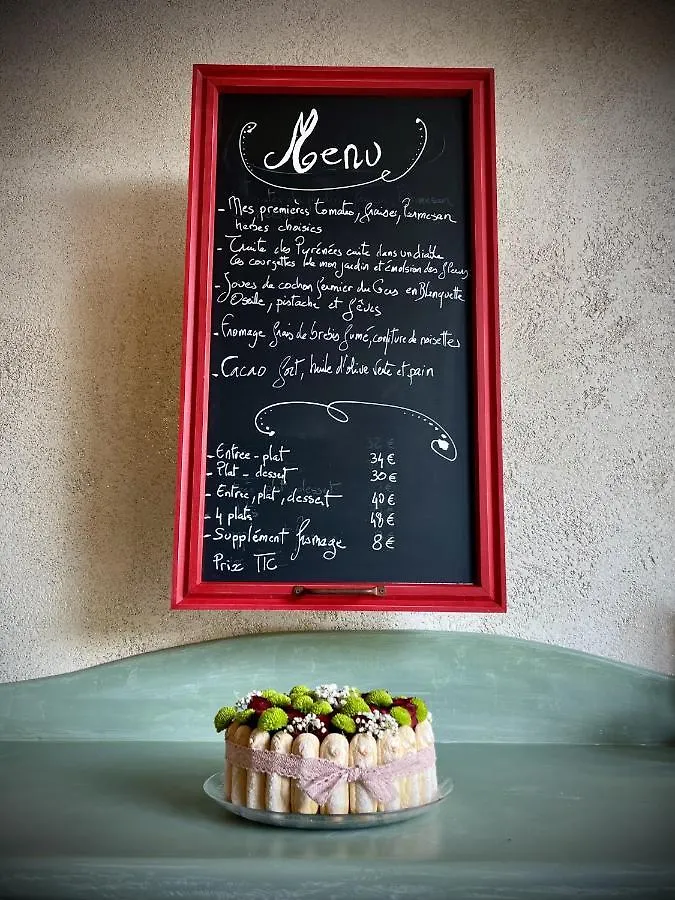 Menu
- Mes premières tomates, fraises, Parmesan
herbes choisies
- Truite des Pyrénées cuite dans un diable
Les courgettes de mon jardin et émulsion des fleurs
- Joues de cochon fermier du Gers en Blanquette
Oseille, pistache et fèves
- Fromage frais de brebis fumé, confiture de noisettes
- Cacao fort, huile d'olive verte et pain
- Entrée - plat 34 €
- Plat - dessert 30 €
- Entrée, plat, dessert 40 €
- 4 plats 48 €
- Supplément fromage 8 €
Prix TTC